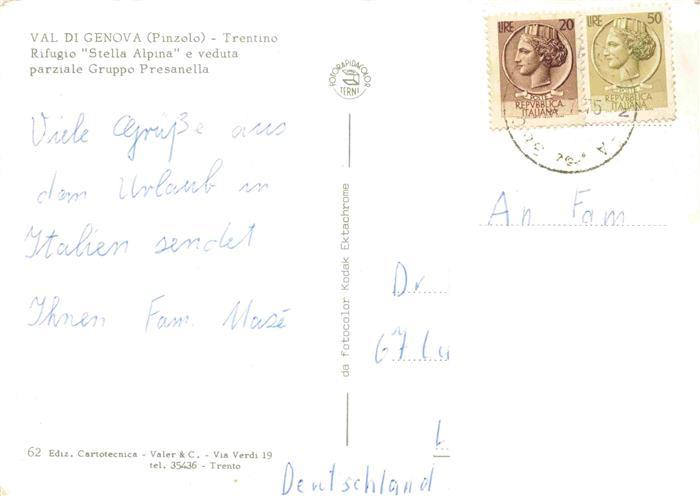 VAL DI GENOVA (Pinzolo) - Trentino
Rifugio "Stella Alpina" e veduta
parziale Gruppo Presanella
FOTORAPIDACOLOR
TERNI
LIRE 20
POSTE
REPVBBLICA
ITALIANA
LIRE 50
POSTE
REPVBBLICA
ITALIANA
Viele Grüße aus
dem Urlaub in
Italien sendet
Ihnen Fam. Masé
da fotocolor Kodak Ektachrome
An Fam
Dr.
67 Lu
Deutschland
62 Ediz. Cartotecnica - Valer & C. - Via Verdi 19
tel. 35436 - Trento